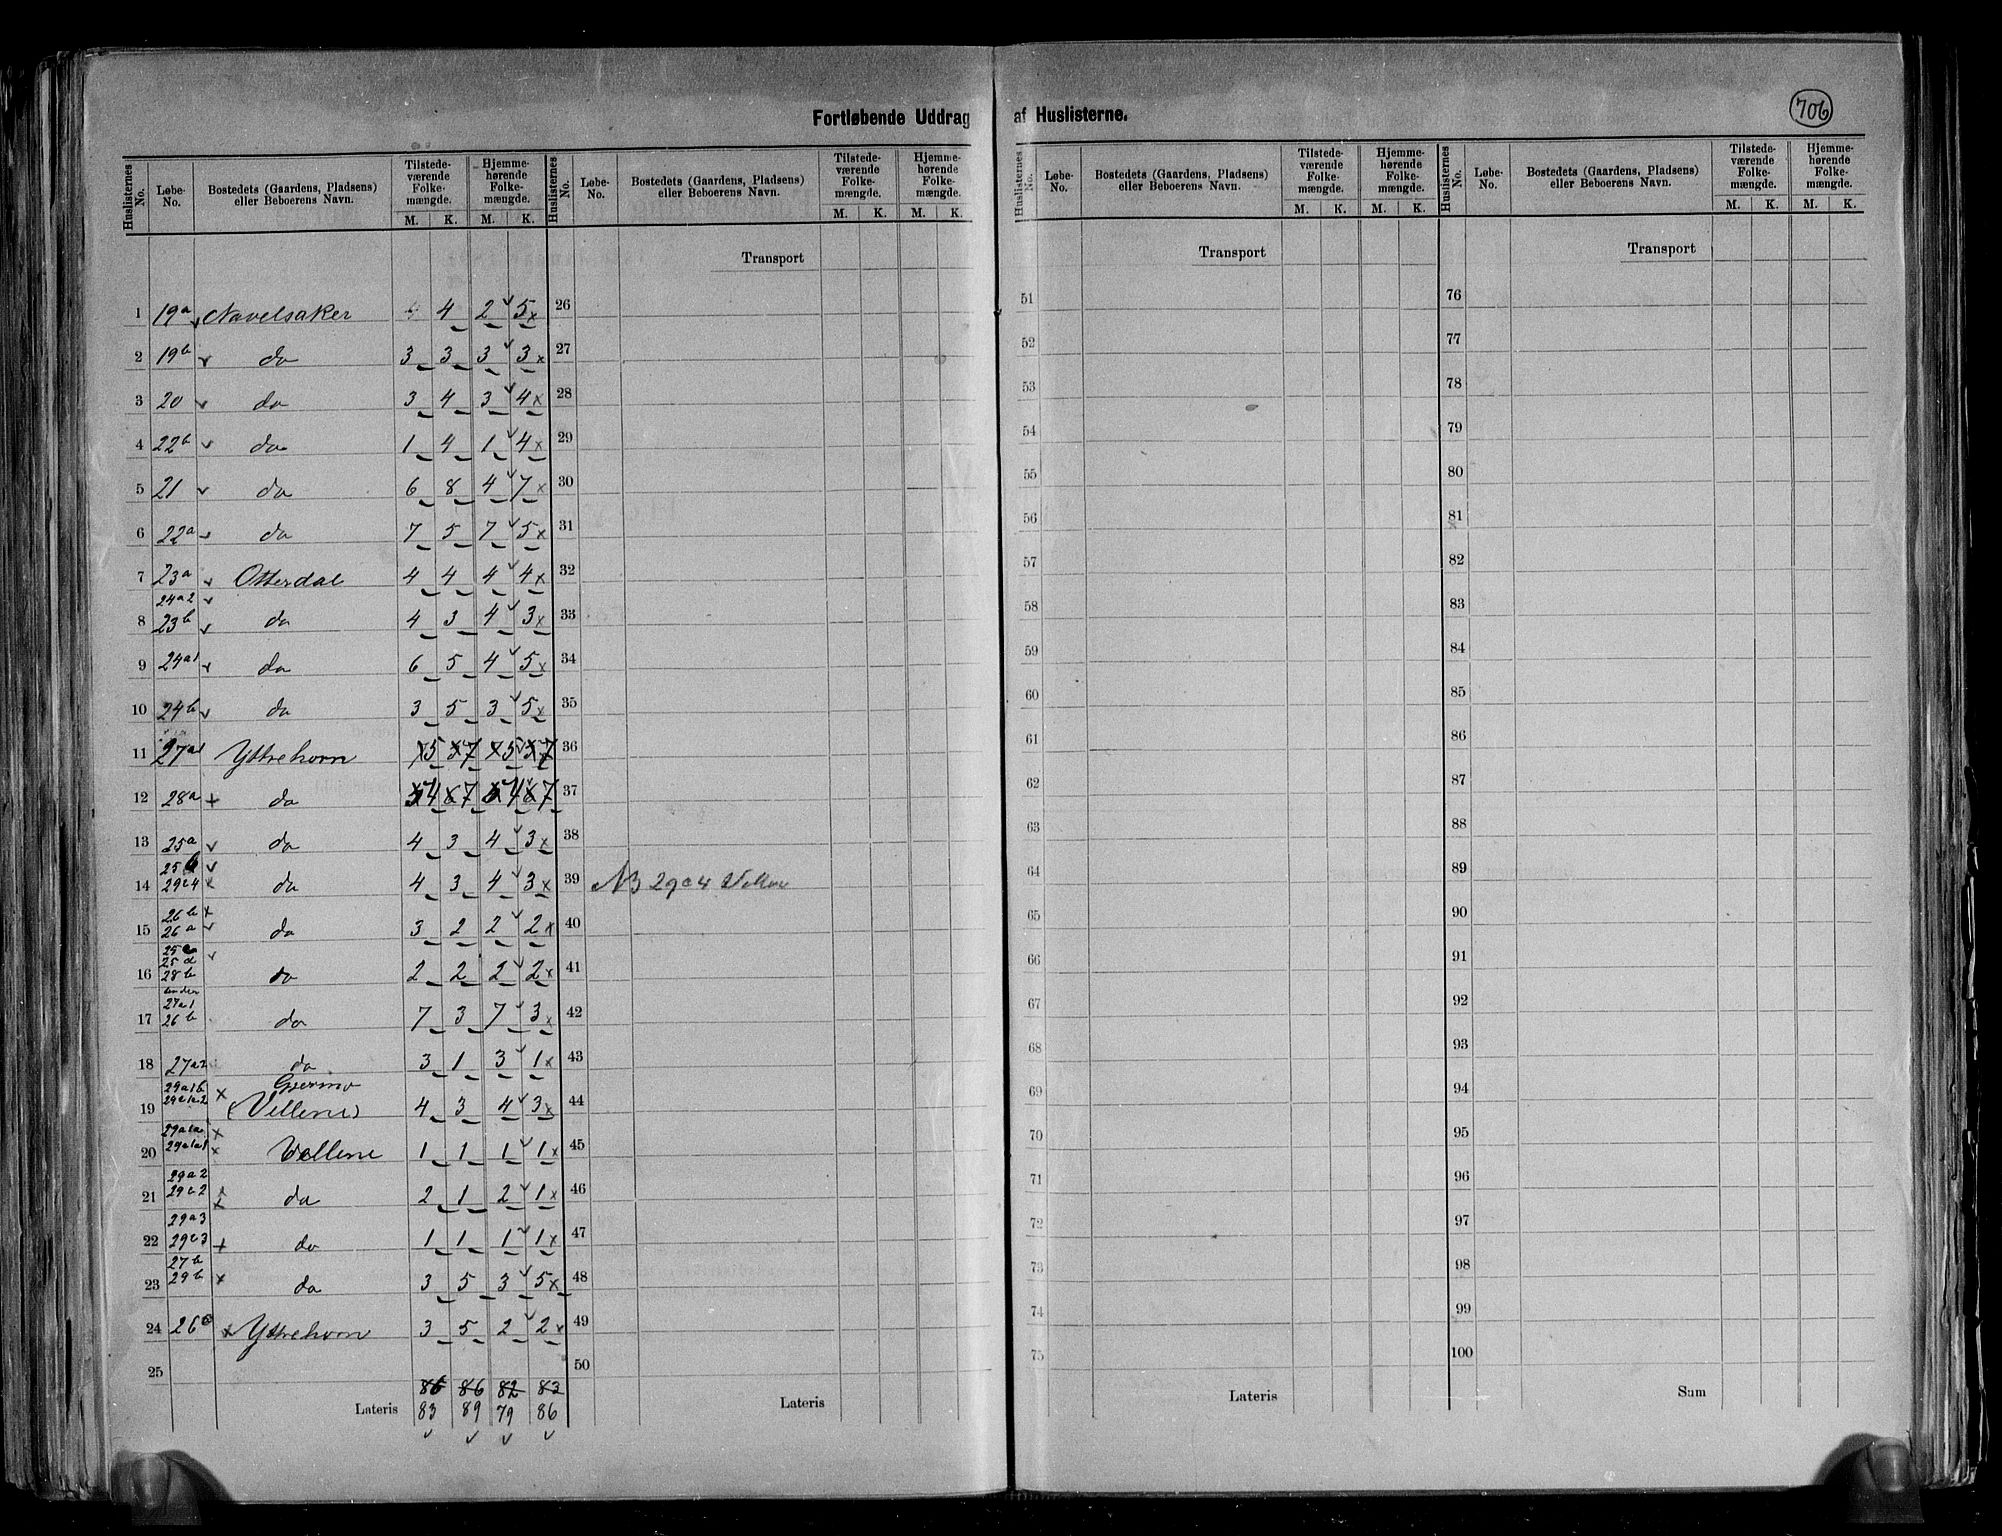 Fortløbende Uddrag af Huslisterne.
706
Huslisternes No. Løbe-No. Bostedets (Gaardens, Pladsens) eller Beboerens Navn. Tilstedeværende Folkemængde. M. K. Hjemmehørende Folkemængde. M. K.
1 19a Navelsaker 4 4 2 5
2 19b do 3 3 3 3
3 20 do 3 4 3 4
4 22b do 1 4 1 4
5 21 do 6 8 4 7
6 22a do 7 5 7 5
7 23a Otterdal 4 4 4 4
24a2
8 23b do 4 3 4 3
9 24a1 do 6 5 4 5
10 24b do 3 5 3 5
11 27a1 Yttrehorn 5 7 5 7
12 28a do 4 7 4 7
13 25a do 4 3 4 3
25b
14 29c4 do 4 3 4 3
26b
15 26a do 3 2 2 2
25c
25d
16 28b do 2 2 2 2
under
27a1
17 26b do 7 3 7 3
18 27a2 do 3 1 3 1
29a1b
19 (Vellene) 4 3 4 3
20 29a1a1 Vellene 1 1 1 1
29a2
21 29c2 do 2 1 2 1
29a3
22 29c3 do 1 1 1 1
27b
23 29b do 3 5 3 5
24 26c Yttrehorn 3 5 2 2
25
86 86 82 83
Lateris 83 89 79 86
Huslisternes No. Løbe-No. Bostedets (Gaardens, Pladsens) eller Beboerens Navn. Tilstedeværende Folkemængde. M. K. Hjemmehørende Folkemængde. M. K.
Transport
26
27
28
29
30
31
32
33
34
35
36
37
38
39 NB 29c4
40
41
42
43
44
45
46
47
48
49
50
Lateris
Huslisternes No. Løbe-No. Bostedets (Gaardens, Pladsens) eller Beboerens Navn. Tilstedeværende Folkemængde. M. K. Hjemmehørende Folkemængde. M. K.
Transport
51
52
53
54
55
56
57
58
59
60
61
62
63
64
65
66
67
68
69
70
71
72
73
74
75
Lateris
Huslisternes No. Løbe-No. Bostedets (Gaardens, Pladsens) eller Beboerens Navn. Tilstedeværende Folkemængde. M. K. Hjemmehørende Folkemængde. M. K.
Transport
76
77
78
79
80
81
82
83
84
85
86
87
88
89
90
91
92
93
94
95
96
97
98
99
100
Sum